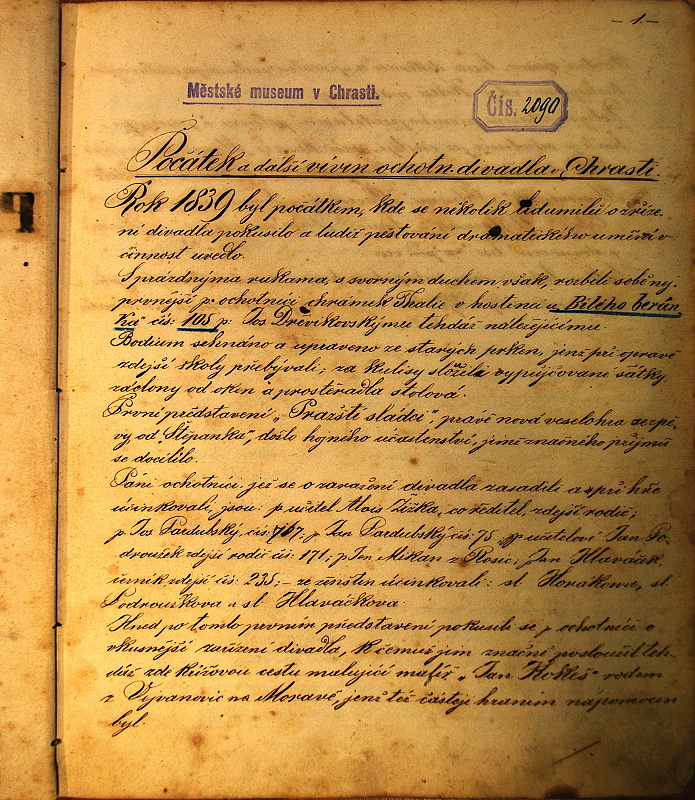 - 1. -
Městské museum v Chrasti.
Čís. 2090
Počátek a další vívin ochotn. divadla v Chrasti.
Rok 1839 byl počátkem, kde se několik lidumilů o zříze-
ní divadla pokusilo a tudíž pěstování dramatického umění v
činnost uvedlo.
S prázdnýma rukama, s svorným duchem však, rozbili sobě ny-
prvnější p. ochotníci chrámek Thalie v hostinci u Bílého berán-
ka čís: 105 p. Jos Dřevikovskýmu tehdáž náležejícímu.
Bodium sehnáno a upraveno ze starých prken, jenž při opravě
zdejší školy přebývali; za kulisy složila vypůjčované šátky
záclony od oken a prostěradla stolová.
První představení „Pražští sládci“, právě nová veselohra se zpě-
vy od „Štěpánka“, došlo hojného účastenství, jímž značného příjmu
se docílilo.
Páni ochotníci, jež se o zaražení divadla zasadili a při hře
účinkovali, jsou: p. učitel Alois Žižka, co ředitel, zdejší rodič;
p. Jos Pardubský, čís: 767; p Jan Pardubský čís: 75; pp učitelové Jan Po-
droužek zdejší rodič čís: 171; p. Jan Mikan z Rosic; Jan Hlaváček,
čeník zdejší čís: 235; - ze ženštin účinkovali: sl. Horákova, sl.
Podroužkova a sl. Hlaváčkova.
Hned po tomto prvním představení pokusili se p. ochotníci o
vkusnější zařízení divadla, k čemuž jim značně posloužil teh-
dáž zde křížovou cestu malující malíř „Jan“ rodem
z na Moravě, jenž též částěji hraním nápomocen
byl.